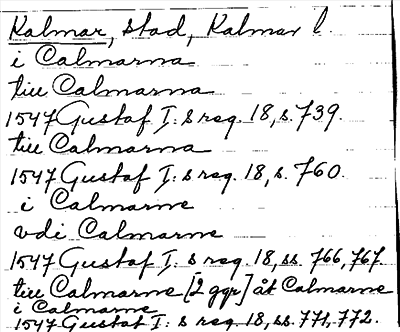 Kalmar, stad, Kalmar l.
i Calmarna
till Calmarna
1547 Gustaf I: s reg. 18, s. 739.
till Calmarna
1547 Gustaf I: s reg. 18, s. 760.
i Calmarne
vdi Calmarne
1547 Gustaf I: s reg. 18, ss. 766, 767.
till Calmarne [2 ggr] åt Calmarne
i Calmarne
1547 Gustaf I: s reg. 18, ss. 771, 772.